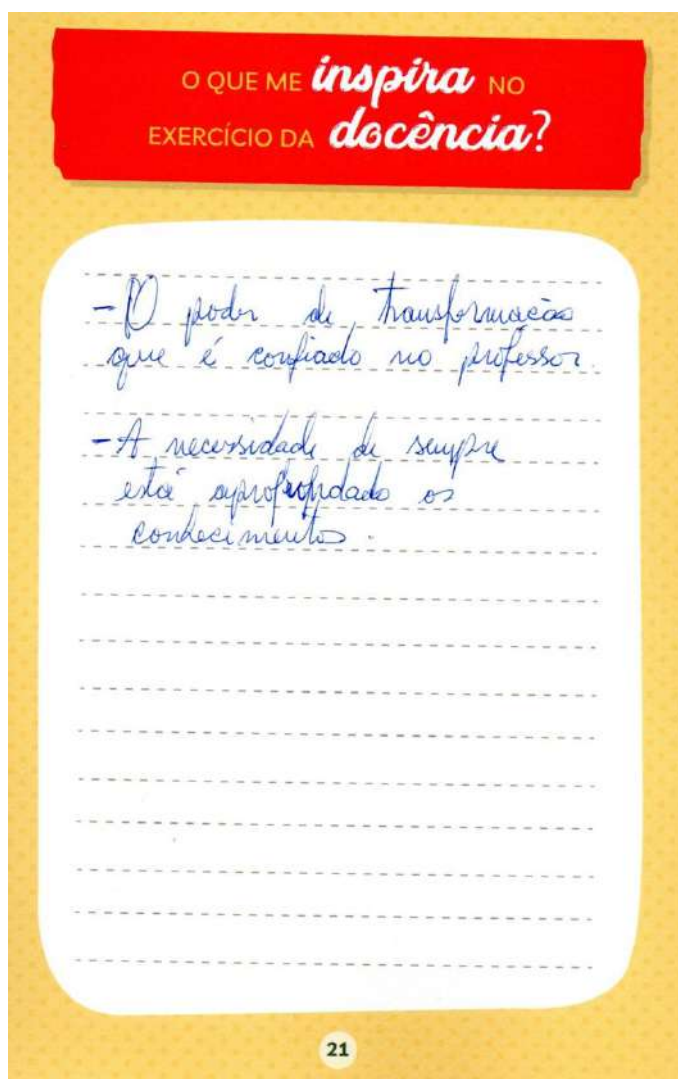 O QUE ME inspira NO
EXERCÍCIO DA docência?
- O poder de transformação
que é confiado no professor.
- A necessidade de sempre
está aprofundado os
conhecimentos.
21